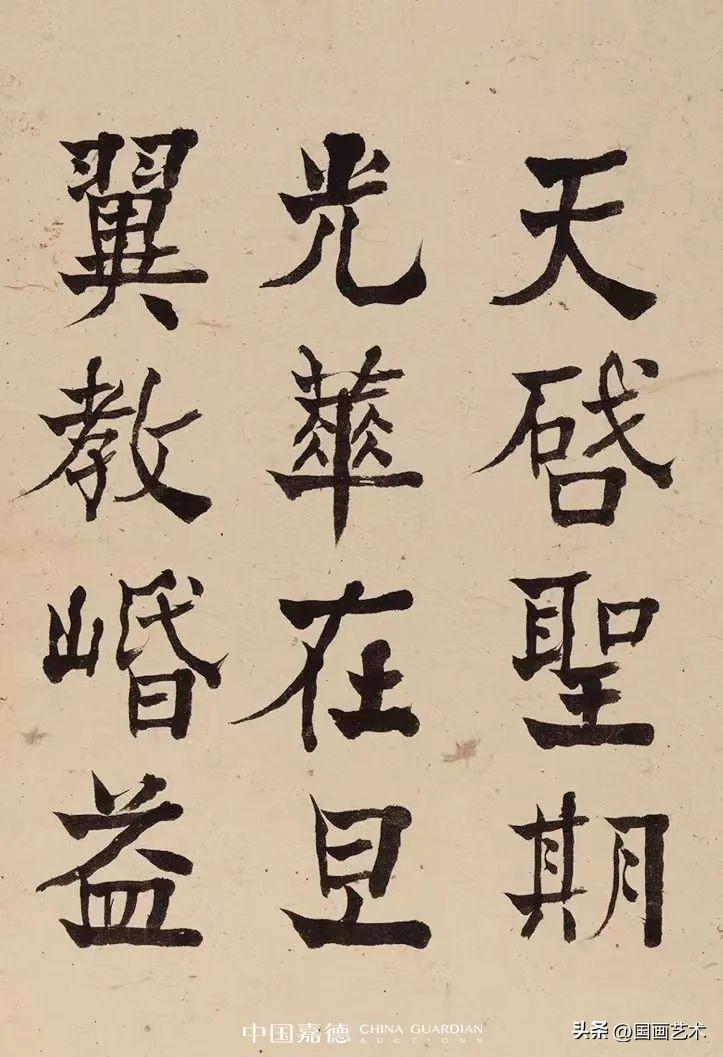 天啓聖期
光華在旦
翼教㟭益
中国嘉德 CHINA GUARDIAN
AUCTIONS
头条 @国画艺术